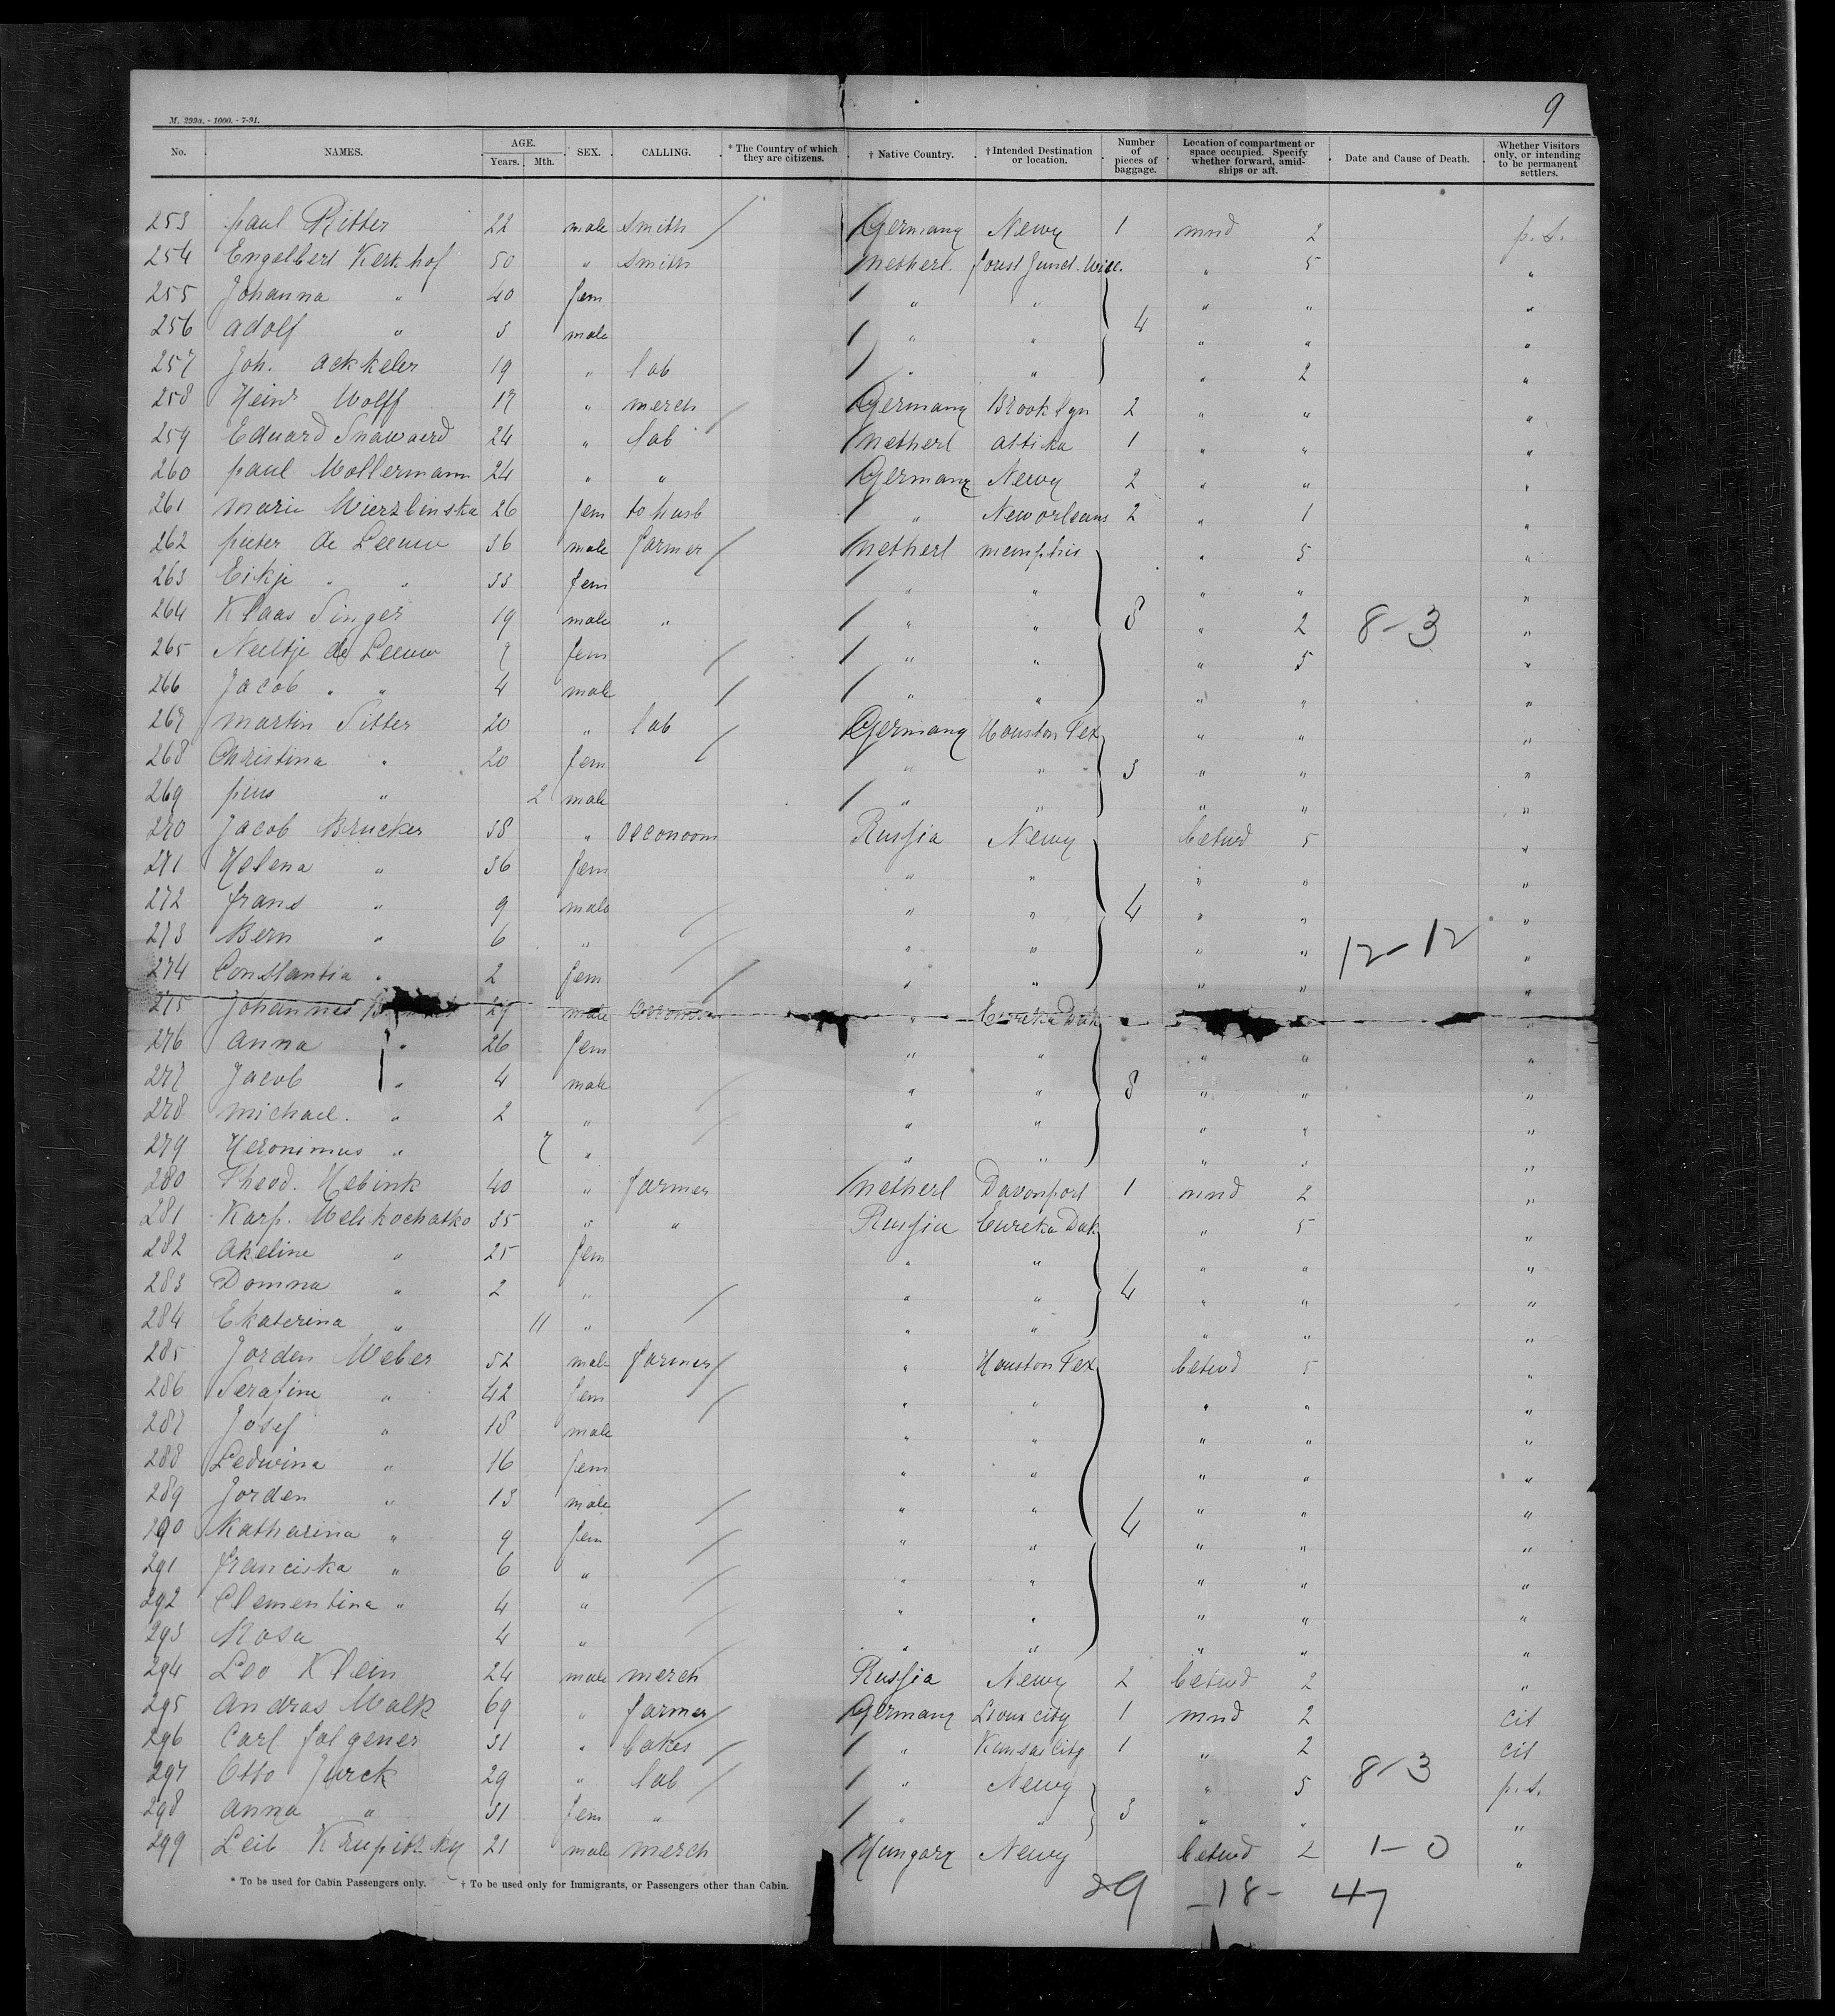 9
M. 299a. - 1000. - 7-91.
No. NAMES. AGE. Years. Mth. SEX. CALLING. * The Country of which they are citizens. † Native Country. † Intended Destination or location. Number of pieces of baggage. Location of compartment or space occupied. Specify whether forward, amid-ships or aft. Date and Cause of Death. Whether Visitors only, or intending to be permanent settlers.
253 paul Ritter 22 male smith / Germany Newy 1 mnd 2 p. s.
254 Engelbert Kerkhof 50 " smith netherl. Junct. Wisc. " 5 "
255 Johanna " 40 fem " " " " "
256 adolf " 3 male " " 4 " " "
257 Joh. ackkeler 19 " lab " " " 2 "
258 Heinr Wolff 17 " merch / Germany Brooklyn 2 " " "
259 Eduard Snawaerd 24 " lab netherl attika 1 " " "
260 paul Wollermann 24 " " Germany Newy 2 " " "
261 marie Wierzbinska 26 fem to husb " Neworleans 2 " 1 "
262 pieter de Leeuw 36 male farmer / netherl memphis " 5 "
263 Eikje " " 33 fem " " " " "
264 Klaas Singer 19 male " " " 8 " 2 8-3 "
265 Neeltje de Leeuw 9 fem / " " " 5 "
266 Jacob " " 4 male / " " " " "
267 martin Sitter 20 " lab / Germany Houston Tex " " "
268 Christina " 20 fem / " " 3 " " "
269 pius " 2 male " " " " "
270 Jacob Brucker 38 " oeconoom Russia Newy betwd 5 "
271 Helena " 36 fem " " " " "
272 frans " 9 male / " " 4 " " "
273 Bern " 6 " / " " " " 12-12 "
274 Constantia " 2 fem / " " " " "
275 Johannes 29 male oeconoom " Eureka Dak "
276 anna " 26 fem " " " " "
277 Jacob " 4 male / " " 8 " " "
278 michael. " 2 " / " " " " "
279 Heronimus " 7 " " " " " "
280 Theod. Hebink 40 " farmer netherl Davenport 1 mnd 2 "
281 Karp. Melikochatko 35 " " Russia Eureka Dak " 5 "
282 akeline " 25 fem " " " " "
283 Domna " 2 " / " " 4 " " "
284 Ekaterina " 11 " " " " " "
285 Jorden Weber 52 male farmer / " Houston Tex betwd 5 "
286 Serafine " 42 fem / " " " " "
287 Josef " 18 male " " " " "
288 Ledwina " 16 fem " " " " "
289 Jorden " 13 male / " " " " "
290 Katharina " 9 fem / " " 4 " " "
291 franciska " 6 " / " " " " "
292 Clementina " 4 " / " " " " "
293 Rosa 4 " / " " " " "
294 Leo Klein 24 male merch Russia Newy 2 betwd 2 "
295 andras Walk 69 " farmer / Germany Sioux city 1 mnd 2 cit
296 Carl folgener 31 " baker / " Kansas City 1 " 2 cit
297 Otto Jurck 29 " lab / " Newy " 5 8-3 p. s.
298 anna " 31 fem " " " 3 " " "
299 Leib 21 male merch Hungary Newy betwd 2 1-0 "
* To be used for Cabin Passengers only. † To be used only for Immigrants, or Passengers other than Cabin.
29 -18- 47